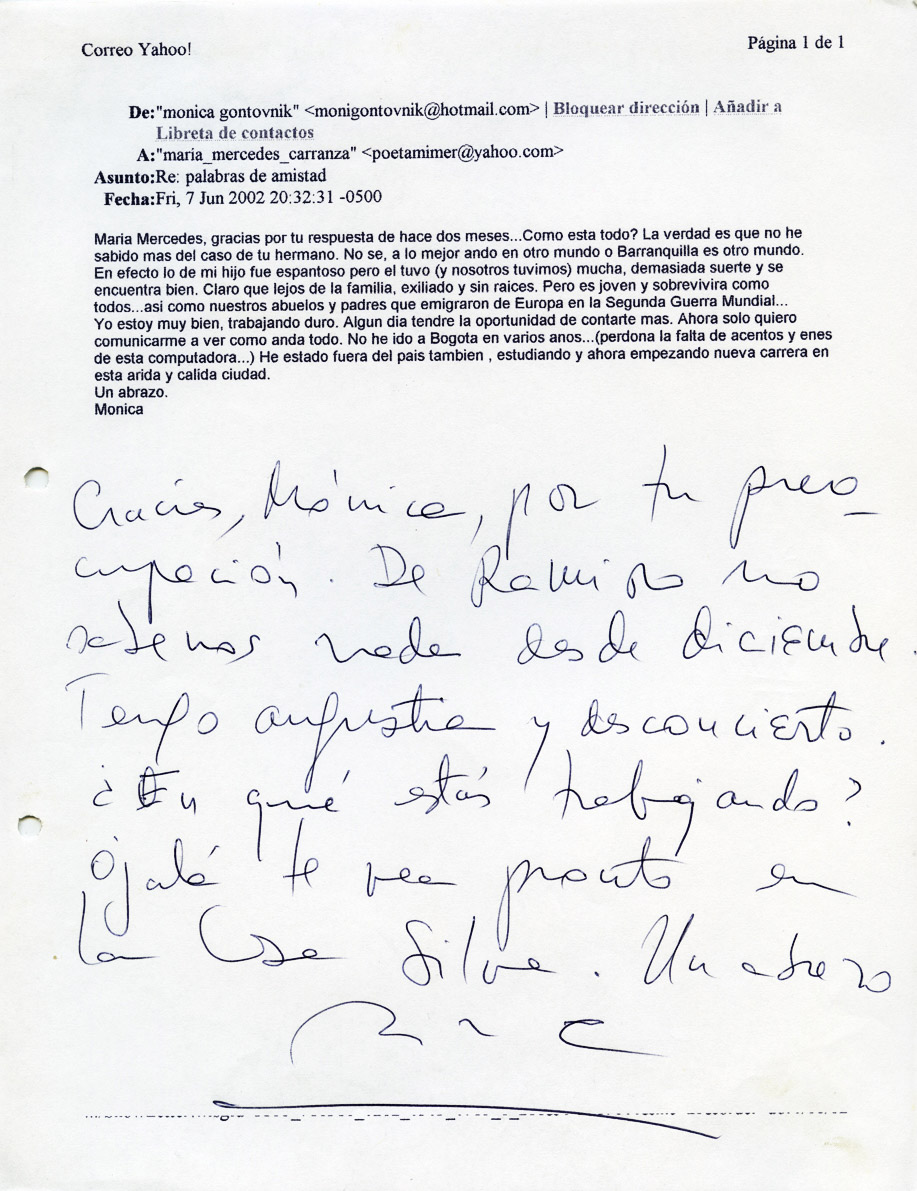 Correo Yahoo!
Página 1 de 1
De:"monica gontovnik" <monigontovnik@hotmail.com> | Bloquear dirección | Añadir a
Libreta de contactos
A:"maria_mercedes_carranza" <poetamimer@yahoo.com>
Asunto:Re: palabras de amistad
Fecha:Fri, 7 Jun 2002 20:32:31 -0500
Maria Mercedes, gracias por tu respuesta de hace dos meses...Como esta todo? La verdad es que no he
sabido mas del caso de tu hermano. No se, a lo mejor ando en otro mundo o Barranquilla es otro mundo.
En efecto lo de mi hijo fue espantoso pero el tuvo (y nosotros tuvimos) mucha, demasiada suerte y se
encuentra bien. Claro que lejos de la familia, exiliado y sin raices. Pero es joven y sobrevivira como
todos...asi como nuestros abuelos y padres que emigraron de Europa en la Segunda Guerra Mundial...
Yo estoy muy bien, trabajando duro. Algun dia tendre la oportunidad de contarte mas. Ahora solo quiero
comunicarme a ver como anda todo. No he ido a Bogota en varios anos...(perdona la falta de acentos y enes
de esta computadora...) He estado fuera del pais tambien , estudiando y ahora empezando nueva carrera en
esta arida y calida ciudad.
Un abrazo.
Monica
Gracias, Mónica, por tu preo-
cupación. De Ramiro no
sabemos nada desde diciembre.
Tengo angustia y desconcierto.
¿En qué estás trabajando?
Ojalá te vea pronto en
la Casa Silva. Un abrazo